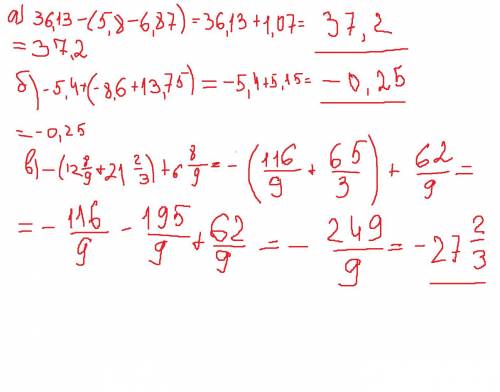 а) 36,13-(5,8-6,87)=36,13+1,07= 37,2
=37,2
б) -5,4+(-8,6+13,75)=-5,4+5,15= -0,25
=-0,25
в) -(12 8/9+21 2/3)+6 8/9=-(116/9+65/3)+62/9=
=-116/9-195/9+62/9=-249/9=-27 2/3